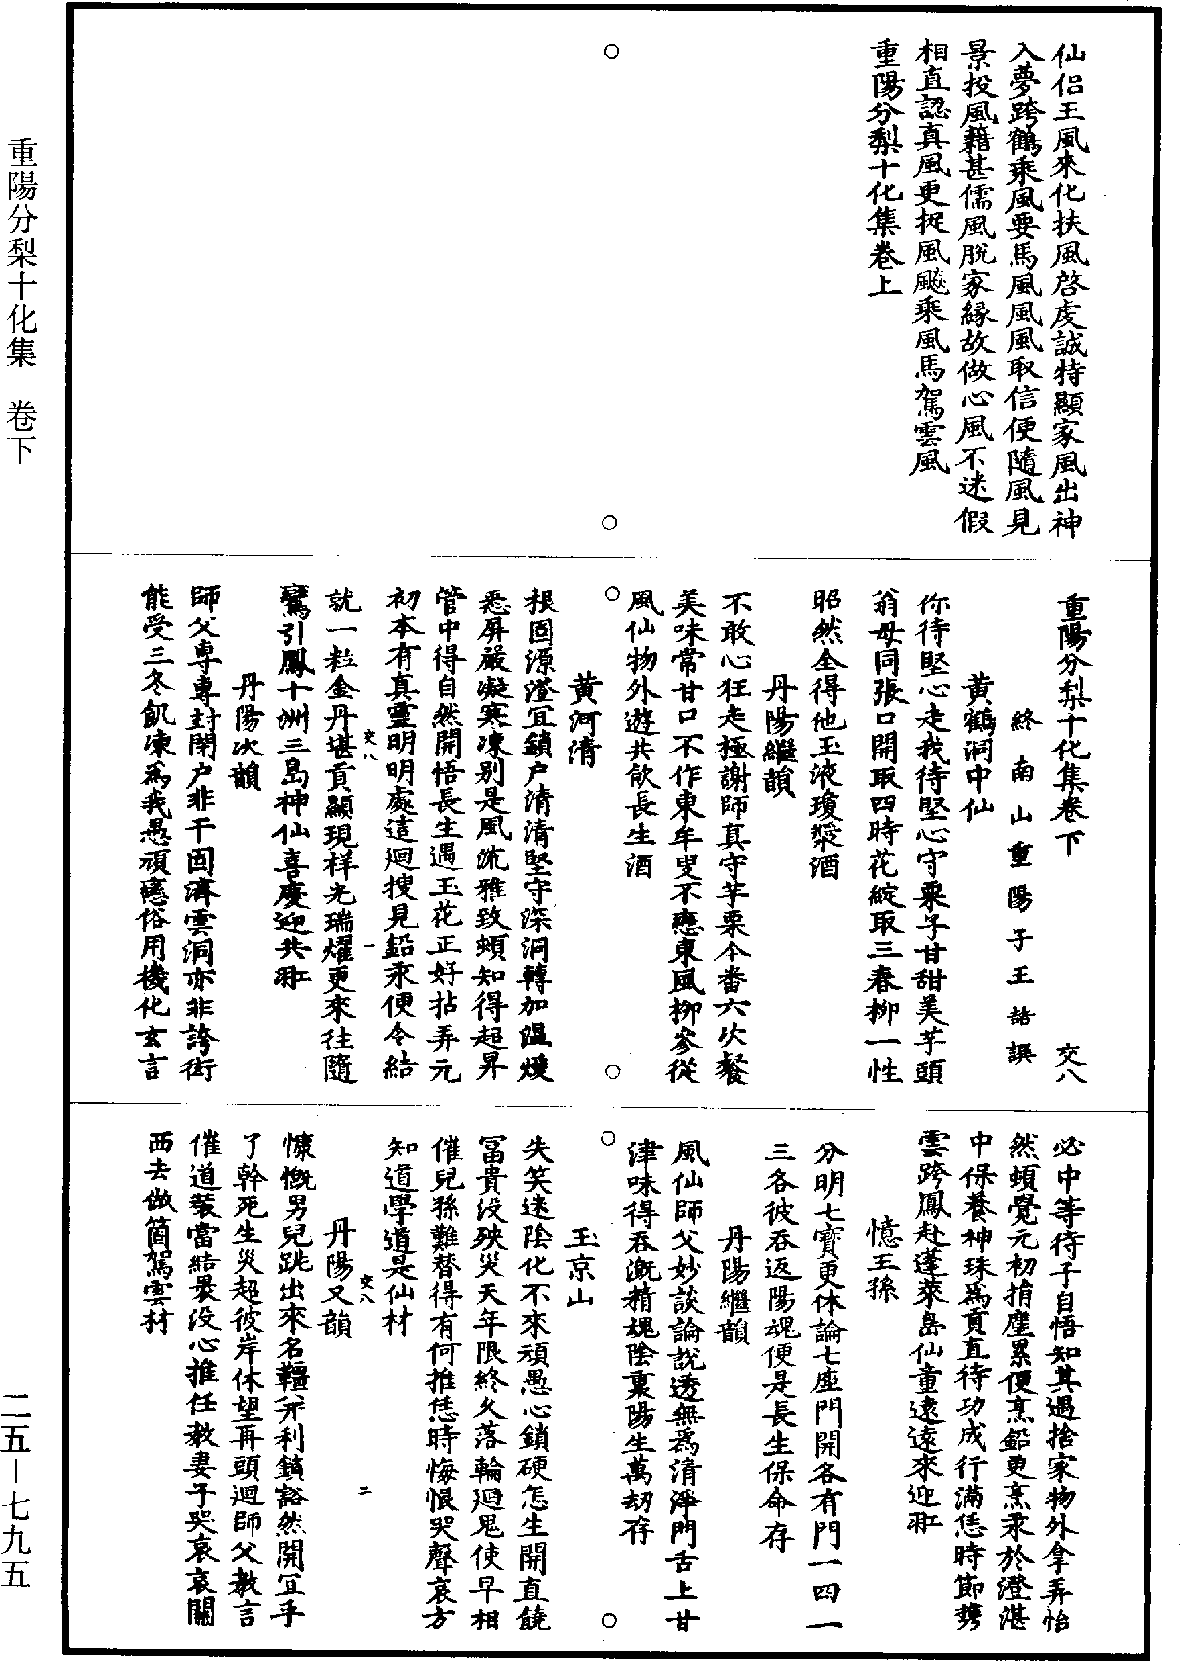 重陽分梨十化集　卷下
二五－七九五
仙侶王風來化扶風啓虔誠特顯家風出神
入夢跨鶴乘風要馬風風風取信便隨風見
景投風藉甚儒風脫家緣故做心風不迷假
相直認真風更捉風颷乘風馬駕雲風
重陽分梨十化集卷上
重陽分梨十化集卷下　交八
終南山重陽子王嚞譔
黃鶴洞中仙
你待堅心走我待堅心守栗子甘甜美芋頭
翁母同張口開取四時花綻取三春柳一性
昭然全得他玉液瓊漿酒
丹陽繼韻
不敢心狂走極謝師真守芋栗今番六次餐
美味常甘口不作東牟叟不戀東風柳爹從
風仙物外遊共飲長生酒
黃河清
根固源澄宜鎖户清清堅守深洞轉加温煖
悉屏嚴凝寒凍別是風流雅致頓知得超昇
管中得自然開悟長生遇玉花正好拈弄元
初本有真靈明明處這迴搜見鉛汞便令結
交八　一
就一粒金丹堪貢顯現祥光瑞耀更來往隨
鸞引鳳十洲三島神仙喜慶迎共𦐧
丹陽次韻
師父專專封閉户非干固濟雲洞亦非誇街
能受三冬飢凍為我愚頑戀俗用機化玄言
必中等待子自悟知其遇捨家物外拿弄怡
然頓覺元初捎塵累便烹鉛更烹汞於澄湛
中保養神珠為貢直待功成行滿恁時節㩦
雲跨鳳赴蓬萊島仙童遠遠來迎𦐧
憶王孫
分明七寶更休論七座門開各有門一四一
三各彼吞返陽魂便是長生保命存
丹陽繼韻
風仙師父妙談論說透無為清淨門舌上甘
津味得吞漑精魂陰裏陽生萬刼存
玉京山
失笑迷陰化不來頑愚心鎖硬怎生開直饒
冨貴没殃災天年限終久落輪廻鬼使早相
催兒孫難替得有何推恁時悔恨哭聲哀方
知道學道是仙材
交八　二
丹陽又韻
慷慨男兒跳出來名韁并利鎖豁然開冝乎
了幹死生災超彼岸休望再頭迴師父教言
催道裝當結裹没心推任教妻子哭哀哀關
西去做箇駕雲材